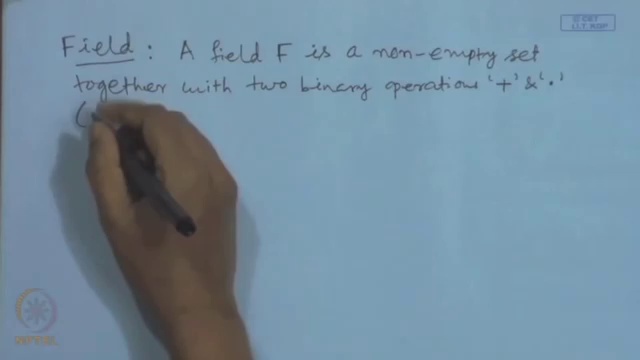 © CET
I.I.T. KGP
Field : A field F is a non-empty set
together with two binary operations '+' & '.'
(
NPTEL